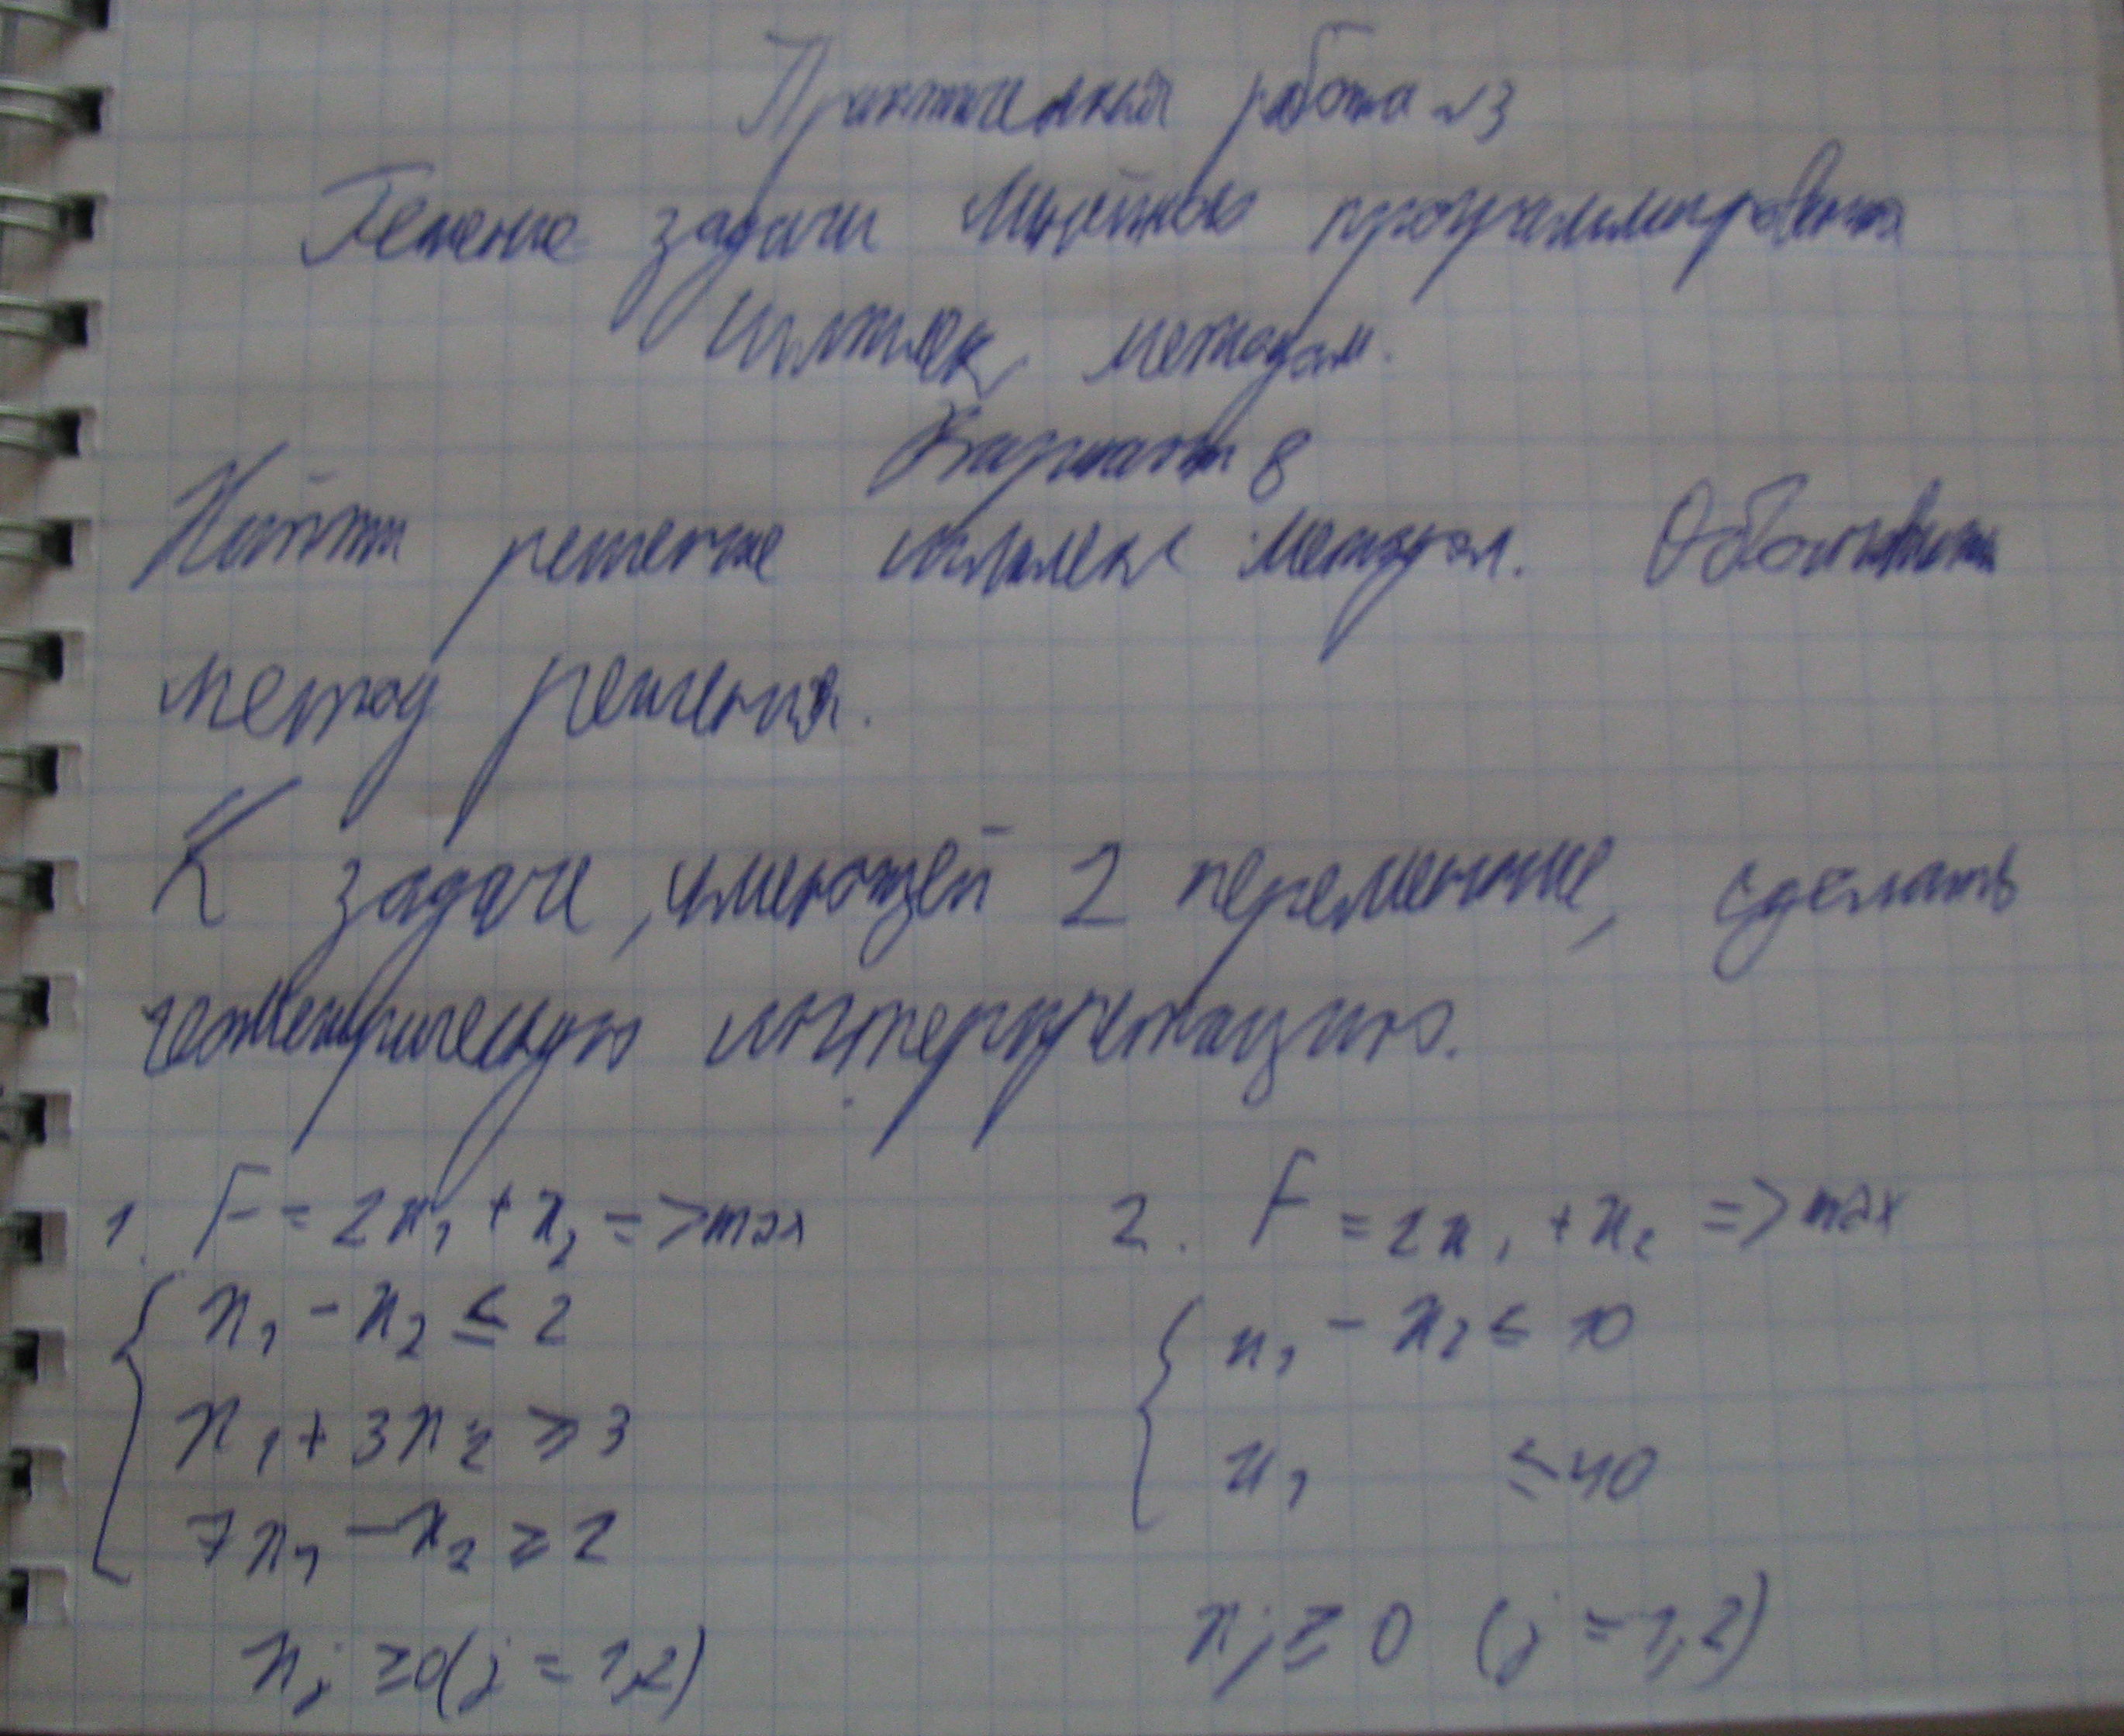 Практическая работа №3
Решение задачи линейного программирования
симплекс методом.
Вариант 8
Найти решение симплекс методом. Обосновать
метод решения.
К задаче, имеющей 2 переменные, сделать
геометрическую интерпретацию.
1. F = 2x₁ + x₂ => max
x₁ - x₂ ≤ 2
x₁ + 3x₂ ≥ 3
7x₁ - x₂ ≥ 2
xⱼ ≥ 0 (j = 1,2)
2. F = 2x₁ + x₂ => max
x₁ - x₂ ≤ 10
x₁ ≤ 40
xⱼ ≥ 0 (j = 1,2)